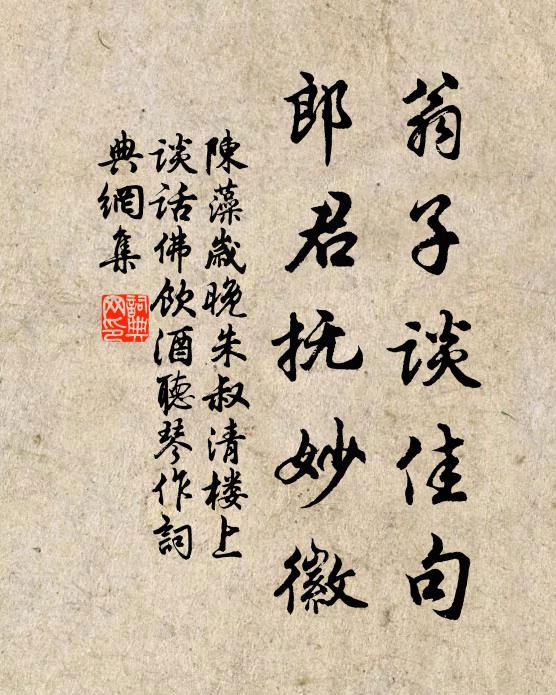 翁子谈佳句
郎君抚妙徽
陳藻歲晚朱叔清楼上
谈话佛飲酒聽琴作詞
典網集
詞典网印